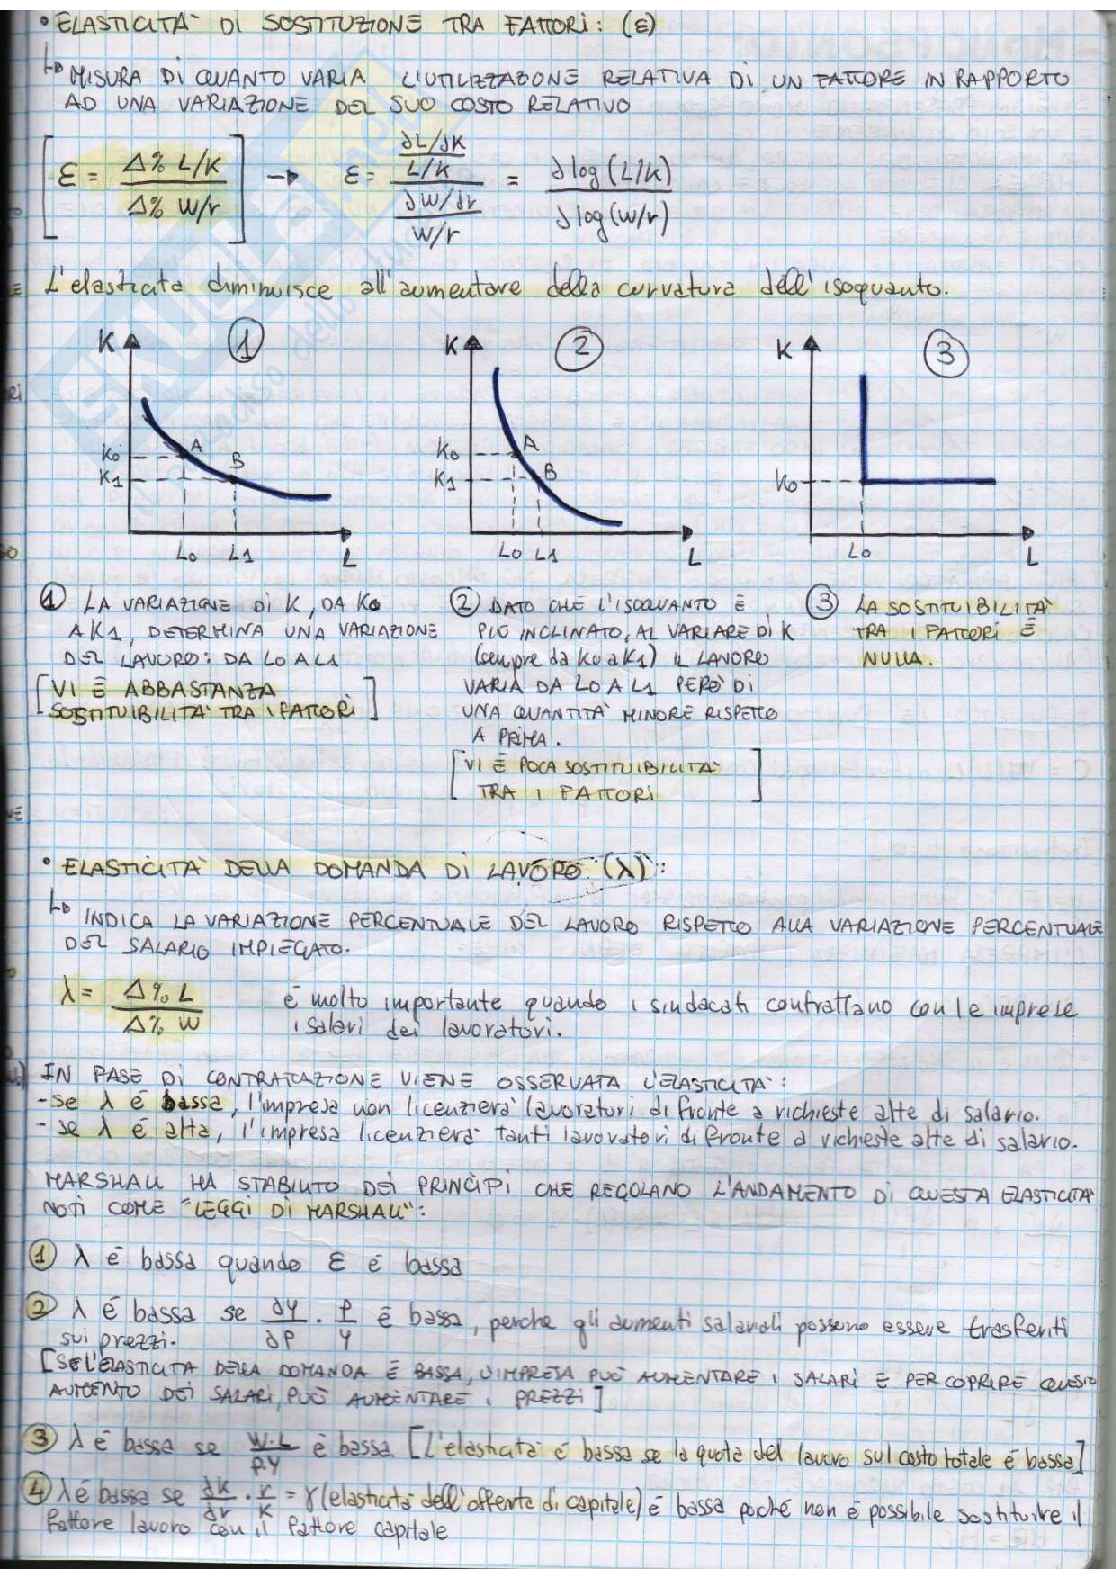 • ELASTICITÀ DI SOSTITUZIONE TRA FATTORI: (ε)
↳ MISURA DI QUANTO VARIA L'UTILIZZAZIONE RELATIVA DI UN FATTORE IN RAPPORTO
AD UNA VARIAZIONE DEL SUO COSTO RELATIVO
[ε = Δ% L/K / Δ% W/r] → ε = (∂L/∂K / L/K) / (∂W/∂r / W/r) = ∂log(L/K) / ∂log(W/r)
L'elasticità diminuisce all'aumentare della curvatura dell'isoquanto.
K 1 K 2 K 3
K0 A K0 A
K1 B K1 B K0
L0 L1 L L0 L1 L L0 L
1 LA VARIAZIONE DI K, DA K0
A K1, DETERMINA UNA VARIAZIONE
DEL LAVORO: DA L0 A L1
[VI È ABBASTANZA
SOSTITUIBILITÀ TRA I FATTORI]
2 DATO CHE L'ISOQUANTO È
PIÙ INCLINATO, AL VARIARE DI K
(sempre da K0 a K1) IL LAVORO
VARIA DA L0 A L1 PERÒ DI
UNA QUANTITÀ MINORE RISPETTO
A PRIMA.
[VI È POCA SOSTITUIBILITÀ
TRA I FATTORI]
3 LA SOSTITUIBILITÀ
TRA I FATTORI È
NULLA.
• ELASTICITÀ DELLA DOMANDA DI LAVORO (λ):
↳ INDICA LA VARIAZIONE PERCENTUALE DEL LAVORO RISPETTO ALLA VARIAZIONE PERCENTUALE
DEL SALARIO IMPIEGATO.
λ = Δ% L / Δ% W è molto importante quando i sindacati contrattano con le imprese
i salari dei lavoratori.
IN FASE DI CONTRATTAZIONE VIENE OSSERVATA L'ELASTICITÀ:
- se λ è bassa, l'impresa non licenzierà lavoratori di fronte a richieste alte di salario.
- se λ è alta, l'impresa licenzierà tanti lavoratori di fronte a richieste alte di salario.
MARSHALL HA STABILITO DEI PRINCIPI CHE REGOLANO L'ANDAMENTO DI QUESTA ELASTICITÀ
NOTI COME "LEGGI DI MARSHALL":
1 λ è bassa quando ε è bassa
2 λ è bassa se ∂Y/∂P · P/Y è bassa, perché gli aumenti salariali possono essere trasferiti
sui prezzi.
[SE L'ELASTICITÀ DELLA DOMANDA È BASSA, L'IMPRESA PUÒ AUMENTARE I SALARI E PER COPRIRE QUESTO
AUMENTO DEI SALARI, PUÒ AUMENTARE I PREZZI]
3 λ è bassa se W·L/PY è bassa [L'elasticità è bassa se la quota del lavoro sul costo totale è bassa]
4 λ è bassa se ∂K/∂r · r/K = γ (elasticità dell'offerta di capitale) è bassa poiché non è possibile sostituire il
fattore lavoro con il fattore capitale